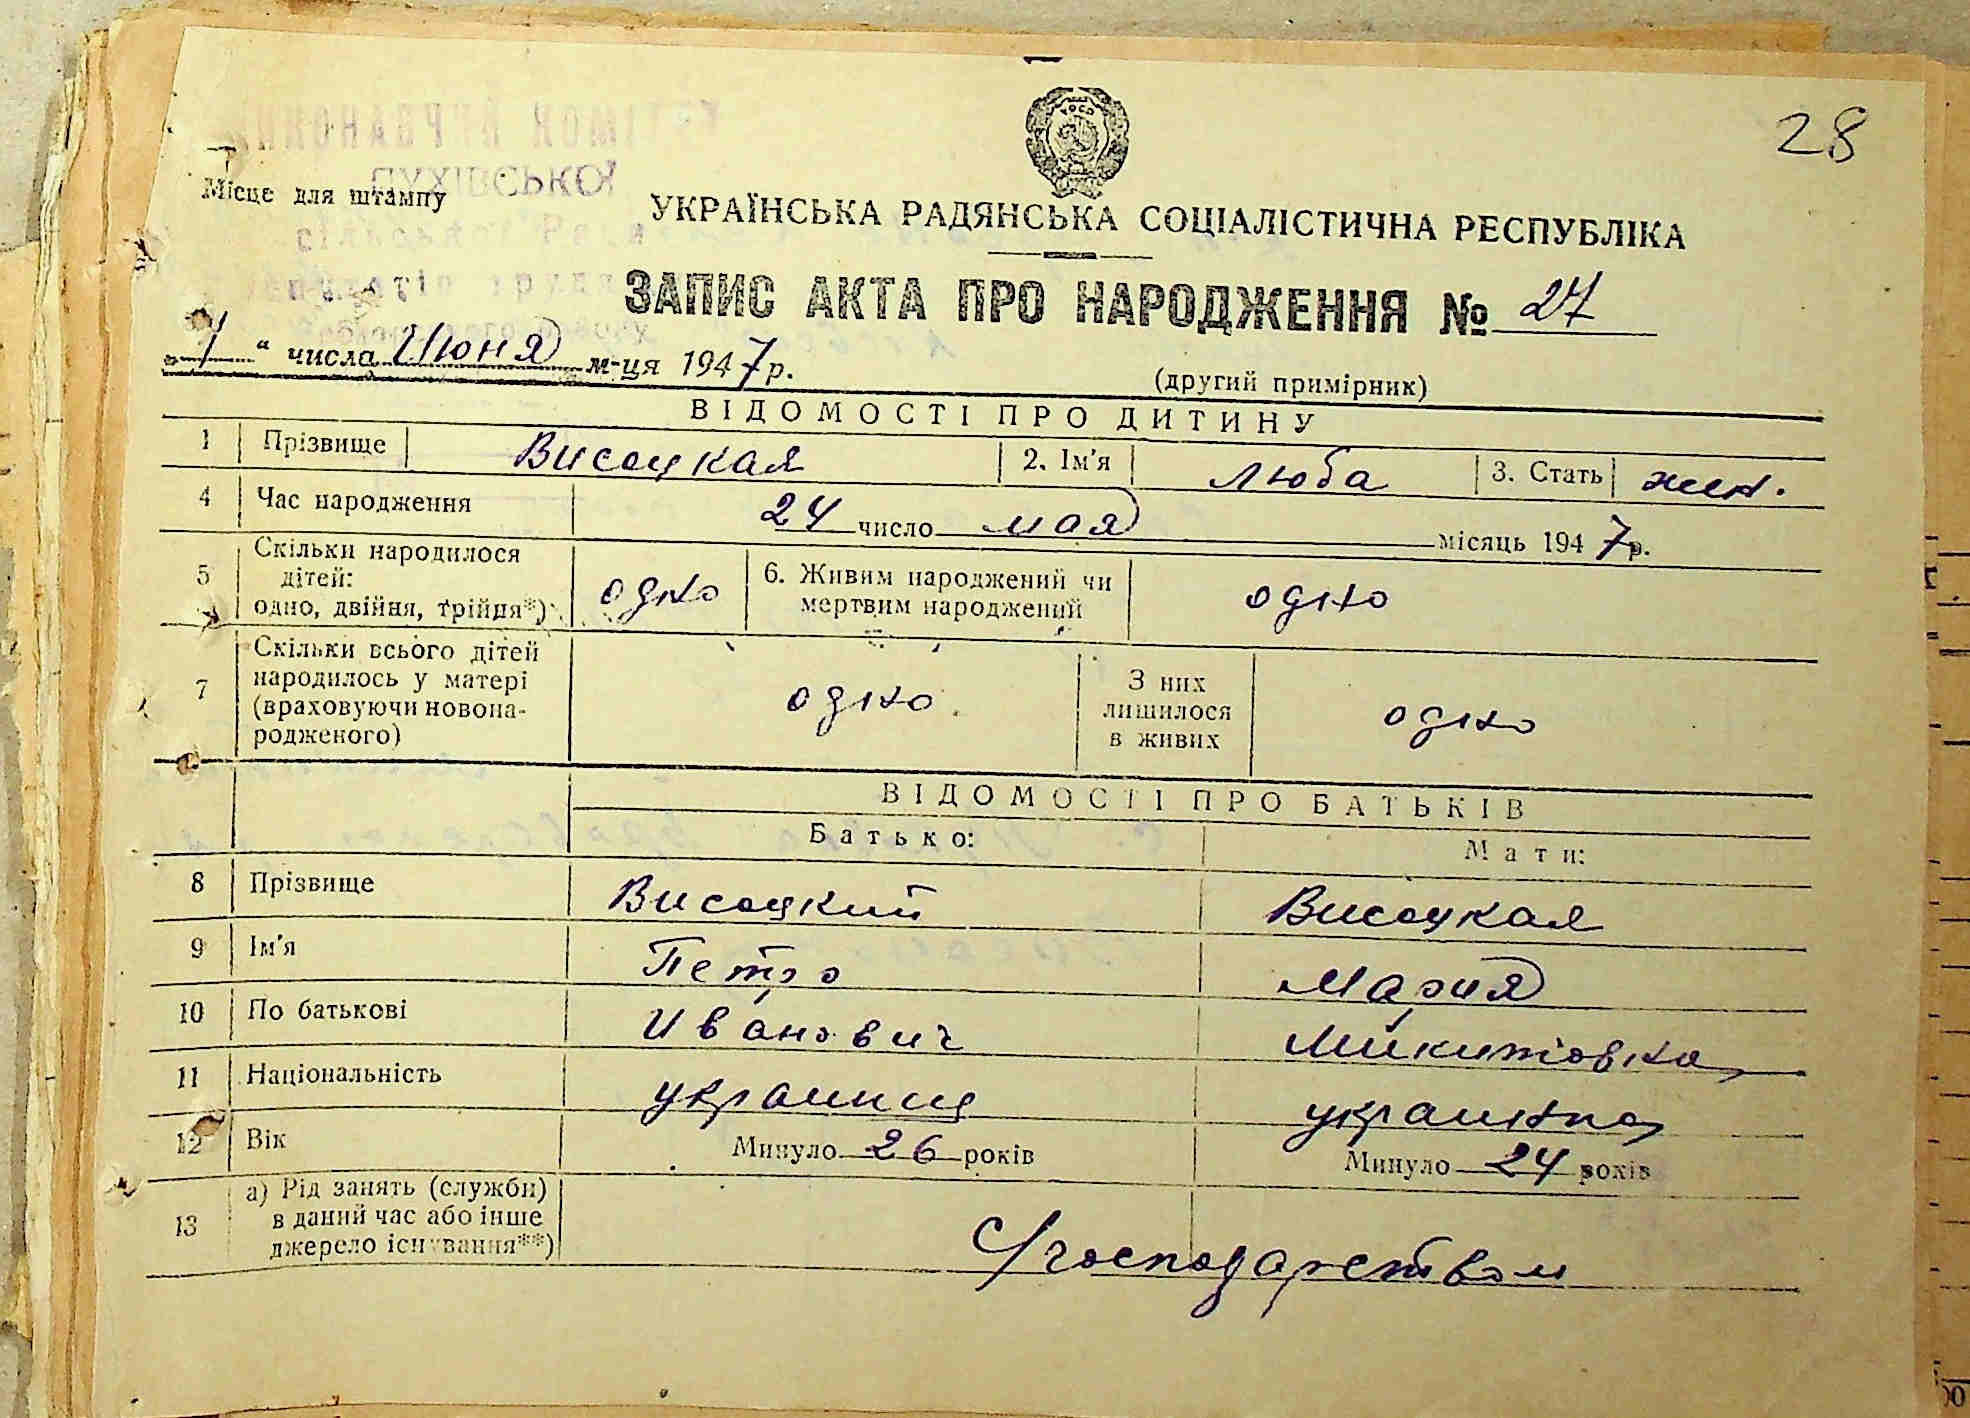 28
Місце для штампу
ПУХІВСЬКОЇ
УКРАЇНСЬКА РАДЯНСЬКА СОЦІАЛІСТИЧНА РЕСПУБЛІКА
ЗАПИС АКТА ПРО НАРОДЖЕННЯ № 27
„1“ числа Июня м-ця 1947р.
(другий примірник)
ВІДОМОСТІ ПРО ДИТИНУ
1 Прізвище Висоцкая 2. Ім'я Люба 3. Стать жен.
4 Час народження 24 число мая місяць 1947р.
5 Скільки народилося дітей: одно, двійня, трійня*) одно 6. Живим народжений чи мертвим народжений одно
7 Скільки всього дітей народилось у матері (враховуючи новонародженого) одно З них лишилося в живих одно
ВІДОМОСТІ ПРО БАТЬКІВ
Батько: Мати:
8 Прізвище Висоцкий Висоцкая
9 Ім'я Петро Мария
10 По батькові Иванович Микитовна
11 Національність украинец украинка
12 Вік Минуло 26 років Минуло 24 років
13 а) Рід занять (служби) в даний час або інше джерело існування**) С/господарством